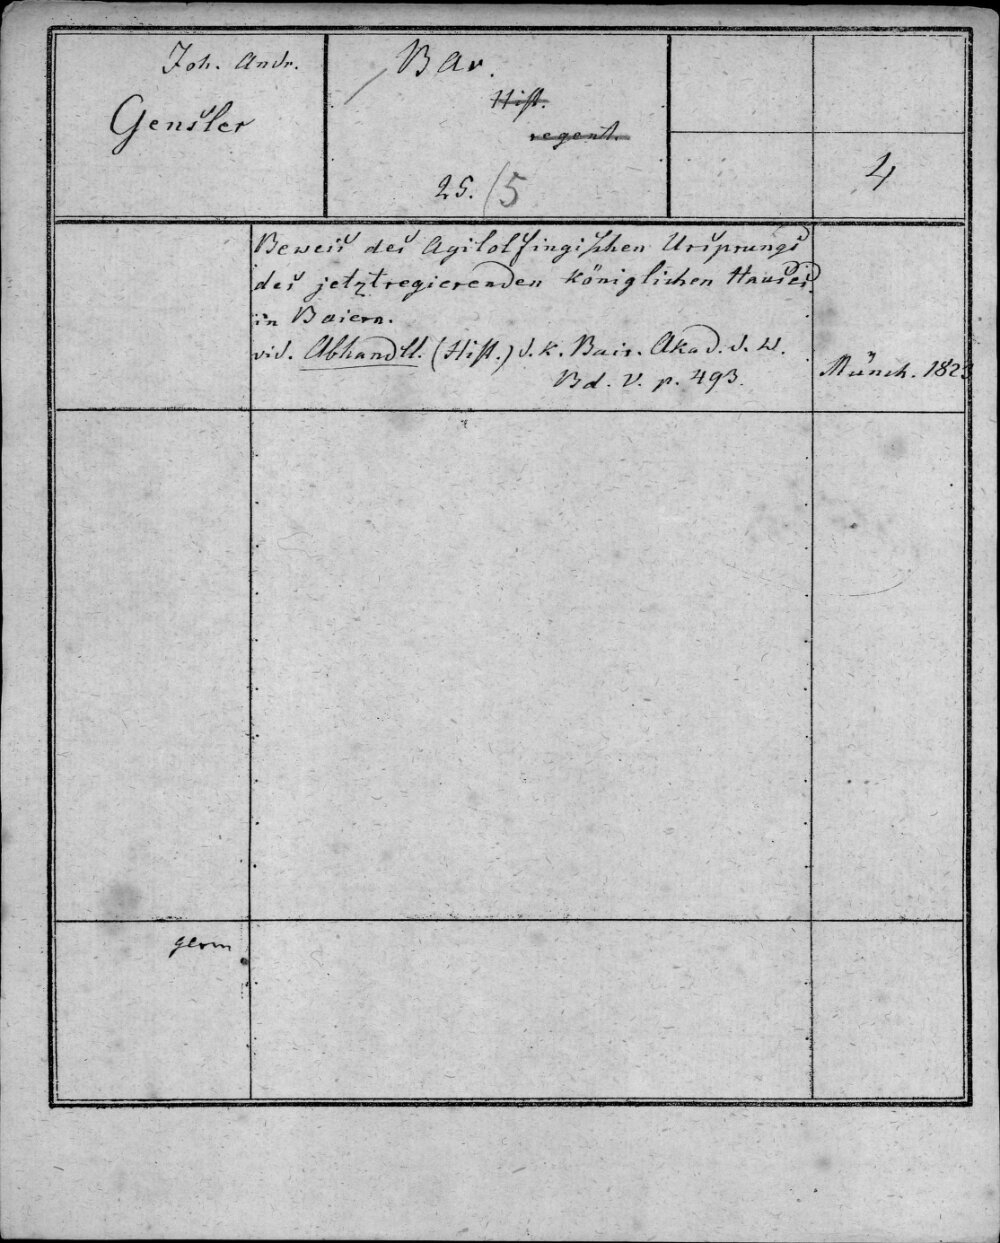 Joh. Andr.
Gensler
Bav.
Hist.
regent.
25. (5
4
Beweis des Agilolfingischen Ursprungs
des jetztregierenden königlichen Hauses
in Baiern.
vid. Abhandll. (Hist.) d. k. Bair. Akad. d. W.
Bd. V. p. 493.
Münch. 1823
germ